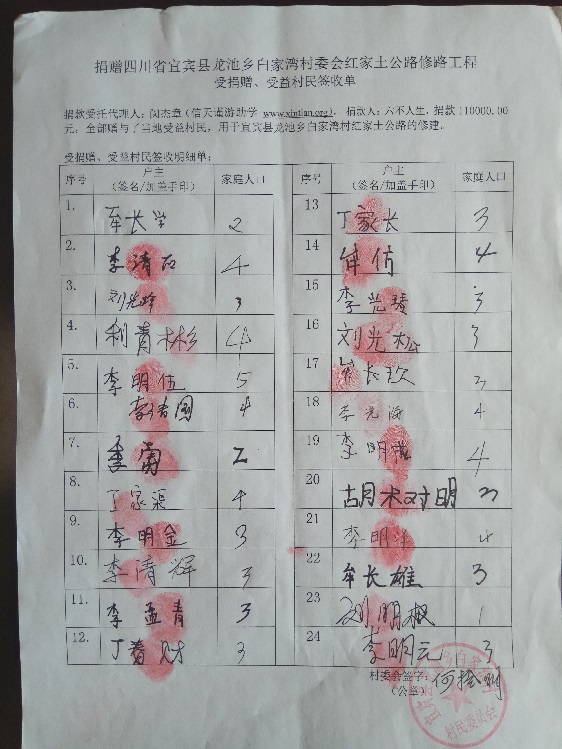 捐赠四川省宜宾县龙池乡白家湾村委会红家土公路修路工程
受捐赠、受益村民签收单
捐款受托代理人：闵杰章（信天谨游助学 www.xintian.org)， 捐款人：六不人生，捐款 110000.00
元，全部赠与了当地受益村民，用于宜宾县龙池乡白家湾村红家土公路的修建。
受捐赠、受益村民签收明细单：
序号 户主（签名/加盖手印） 家庭人口
1. 牟长学 2
2. 李清石 4
3. 刘光玲 3
4. 利青彬 4
5. 李明伍 5
6. 李清国 4
7. 李南 2
8. 丁家渠 4
9. 李明金 3
10. 李清辉 3
11. 李孟青 3
12. 丁春财 3
序号 户主（签名/加盖手印） 家庭人口
13 丁家长 3
14 牟仿 4
15 李光 3
16 刘光松 3
17 牟长玖 3
18 李光海 4
19 李明 4
20 胡树明 3
21 李明 4
22 牟长雄 3
23 刘朋椒 1
24 李明元 3
村委会签字：何
（公章）
村民委员会